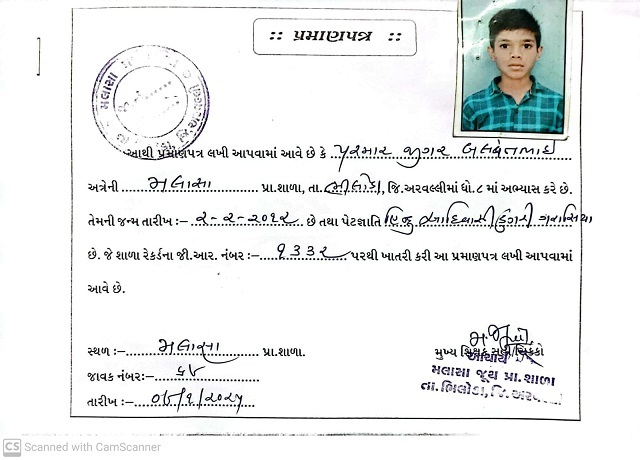 :: પ્રમાણપત્ર ::
આથી પ્રમાણપત્ર લખી આપવામાં આવે છે કે પરમાર જીગર બળવંતભાઈ
અત્રેની મલાસા પ્રા.શાળા, તા. ભીલોડા, જિ.અરવલ્લીમાં ધો.૮ માં અભ્યાસ કરે છે.
તેમની જન્મ તારીખ :- ૨-૨-૨૦૧૨ છે તથા પેટાજ્ઞાતિ હિન્દુ આદિવાસી ડુંગરી ગરાસિયા
છે. જે શાળા રેકર્ડના જી.આર. નંબર :- ૧૩૩૨ પરથી ખાતરી કરી આ પ્રમાણપત્ર લખી આપવામાં
આવે છે.
સ્થળ :- મલાસા પ્રા.શાળા.
મુખ્ય શિક્ષક સહી/સિક્કો
આચાર્ય
જાવક નંબર:- ૬૪
મલાસા જૂથ પ્રા.શાળા
તારીખ :-
તા.ભિલોડા, જિ.
CS Scanned with CamScanner